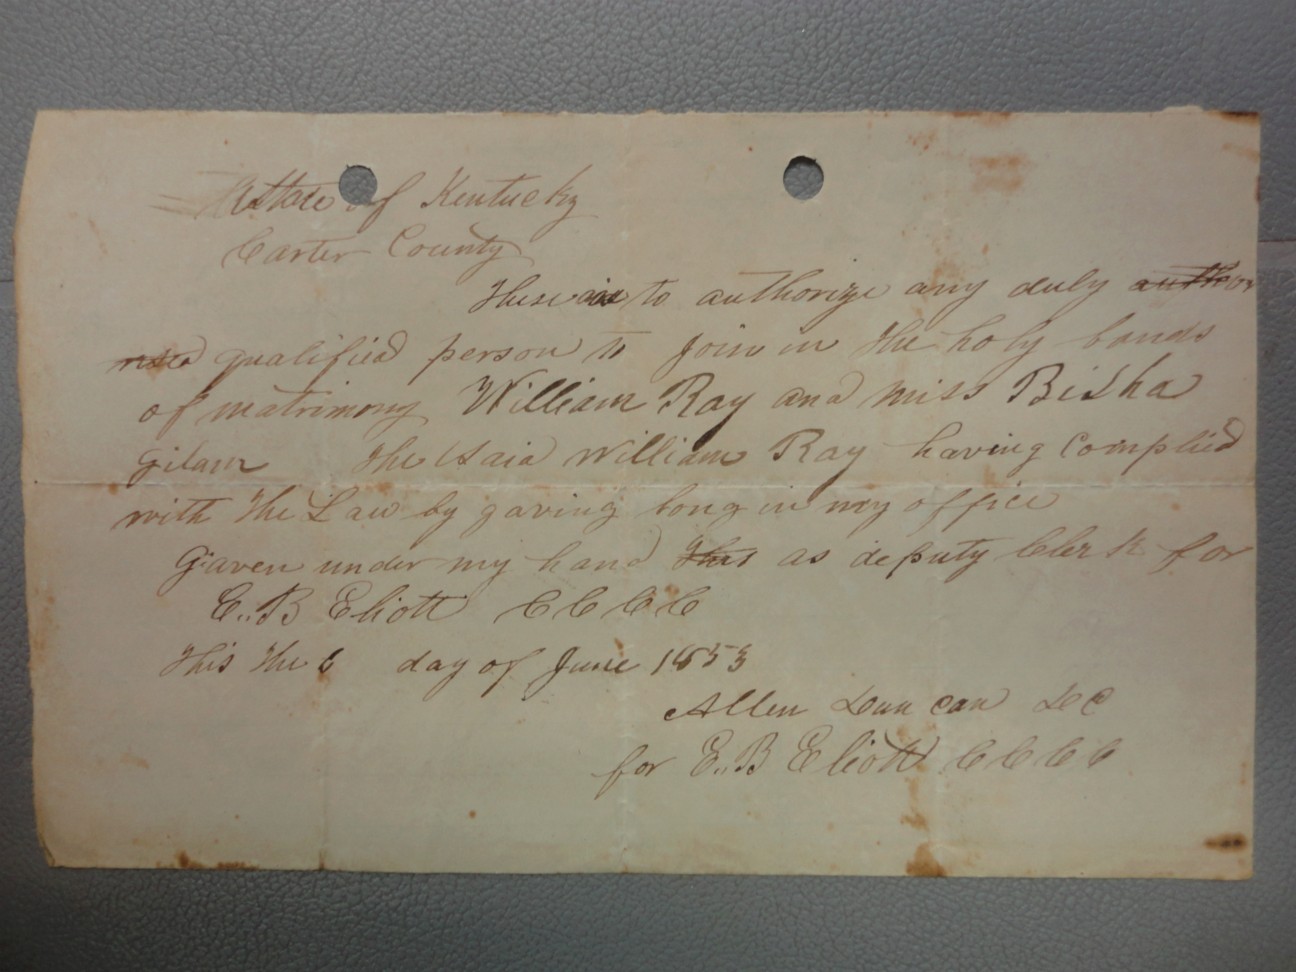 State of Kentucky
Carter County
These is to authorize any duly author
rised qualified person to join in the holy bands
of matrimony William Ray and Miss Bisha
Gilam The Said William Ray having Complied
with the Law by gaving bong in my office
Gaven under my hand This as deputy Clerk for
E.. B Eliott C C C C
This the 6 day of June 1853
Allen Duncan D C
for E.. B Eliott C C C C